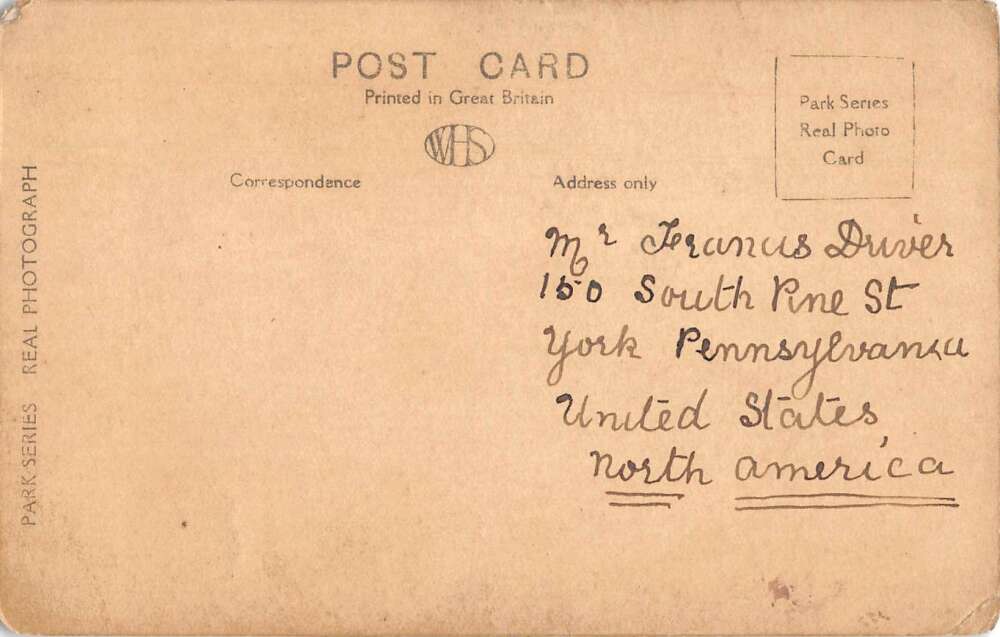 POST CARD
Printed in Great Britain
WHS
Correspondence
Address only
Park Series
Real Photo
Card
PARK SERIES REAL PHOTOGRAPH
Mr Francis Driver
150 South Pine St
York Pennsylvania
United States
North america